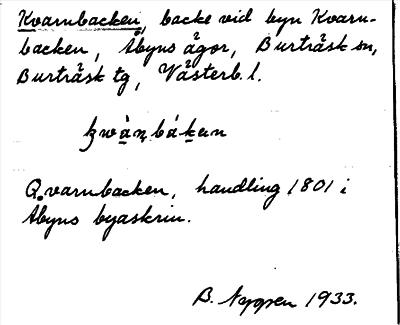 Kvarnbacken, backe vid byn Kvarn-
backen, Åbyns ägor, Burträsk sn,
Burträsk tg, Västerb. l.
Qvarnbacken, handling 1801 i
Åbyns byaskrin.
B. Nygren 1933.